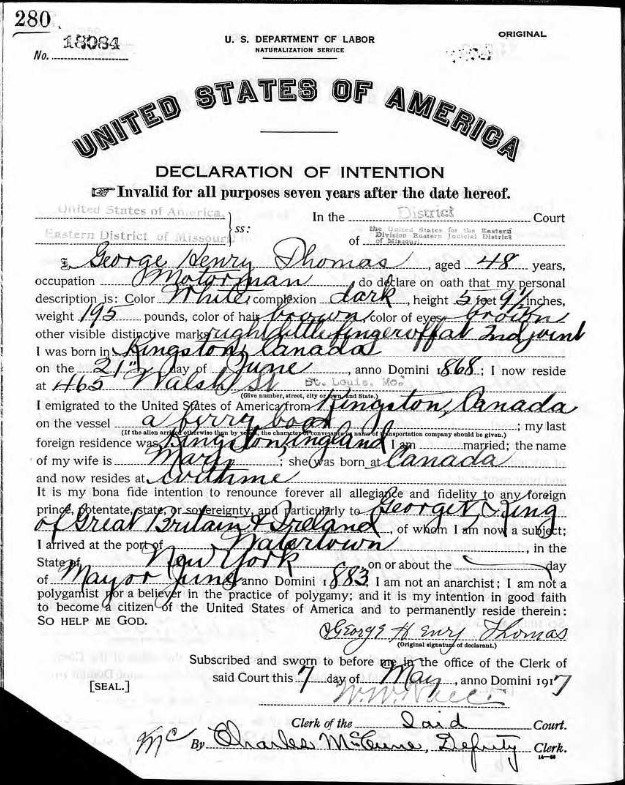 280
No. 18084
U. S. DEPARTMENT OF LABOR
NATURALIZATION SERVICE
ORIGINAL
UNITED STATES OF AMERICA
DECLARATION OF INTENTION
☞ Invalid for all purposes seven years after the date hereof.
United States of America,
Eastern District of Missouri
ss:
In the District Court
of The United States for the Eastern Division Eastern Judicial District of Missouri
I, George Henry Thomas, aged 48 years,
occupation Motorman, do declare on oath that my personal
description is: Color White, complexion dark, height 5 feet 9½ inches,
weight 195 pounds, color of hair brown, color of eyes brown
other visible distinctive marks right little finger off at 2nd joint
I was born in Kingston, Canada
on the 21st day of June, anno Domini 1868; I now reside
at 465 Walsh St St. Louis, Mo.
(Give number, street, city or town, and State.)
I emigrated to the United States of America from Kingston, Canada
on the vessel a ferry boat; my last
(If the alien arrived otherwise than by vessel, the character of conveyance or name of transportation company should be given.)
foreign residence was Kingston, England; I am married; the name
of my wife is Mary; she was born at Canada
and now resides at with me
It is my bona fide intention to renounce forever all allegiance and fidelity to any foreign
prince, potentate, state, or sovereignty, and particularly to George V, King
of Great Britain & Ireland, of whom I am now a subject;
I arrived at the port of Watertown, in the
State of New York, on or about the day
of May or June, anno Domini 1883; I am not an anarchist; I am not a
polygamist nor a believer in the practice of polygamy; and it is my intention in good faith
to become a citizen of the United States of America and to permanently reside therein:
SO HELP ME GOD.
George Henry Thomas
(Original signature of declarant.)
Subscribed and sworn to before me in the office of the Clerk of
said Court this 7 day of May, anno Domini 1917
[SEAL.]
Clerk of the Said Court.
Mc By Charles McCune, Deputy Clerk.